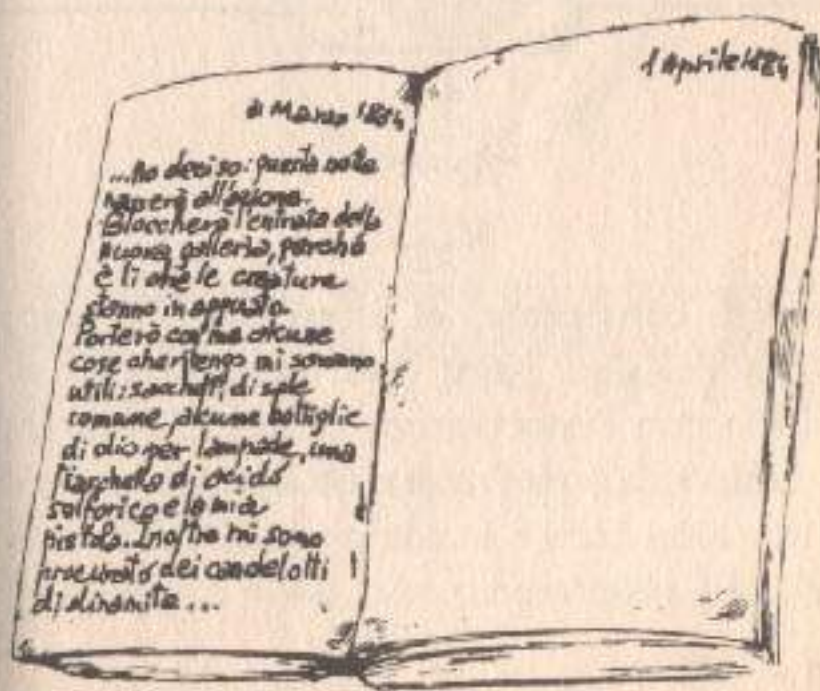 Marzo 1884
...ho deciso: questa notte
all'azione.
Bloccherò l'entrata della
nuova galleria, perché
è lì che le creature
stanno in agguato.
Porterò con me alcune
cose che ritengo mi saranno
utili: sacchetti di sale
comune, alcune bottiglie
di olio per lampade, una
di acido
solforico e la mia
pistola. Inoltre mi sono
procurato dei candelotti
di dinamite...
1 Aprile 1884